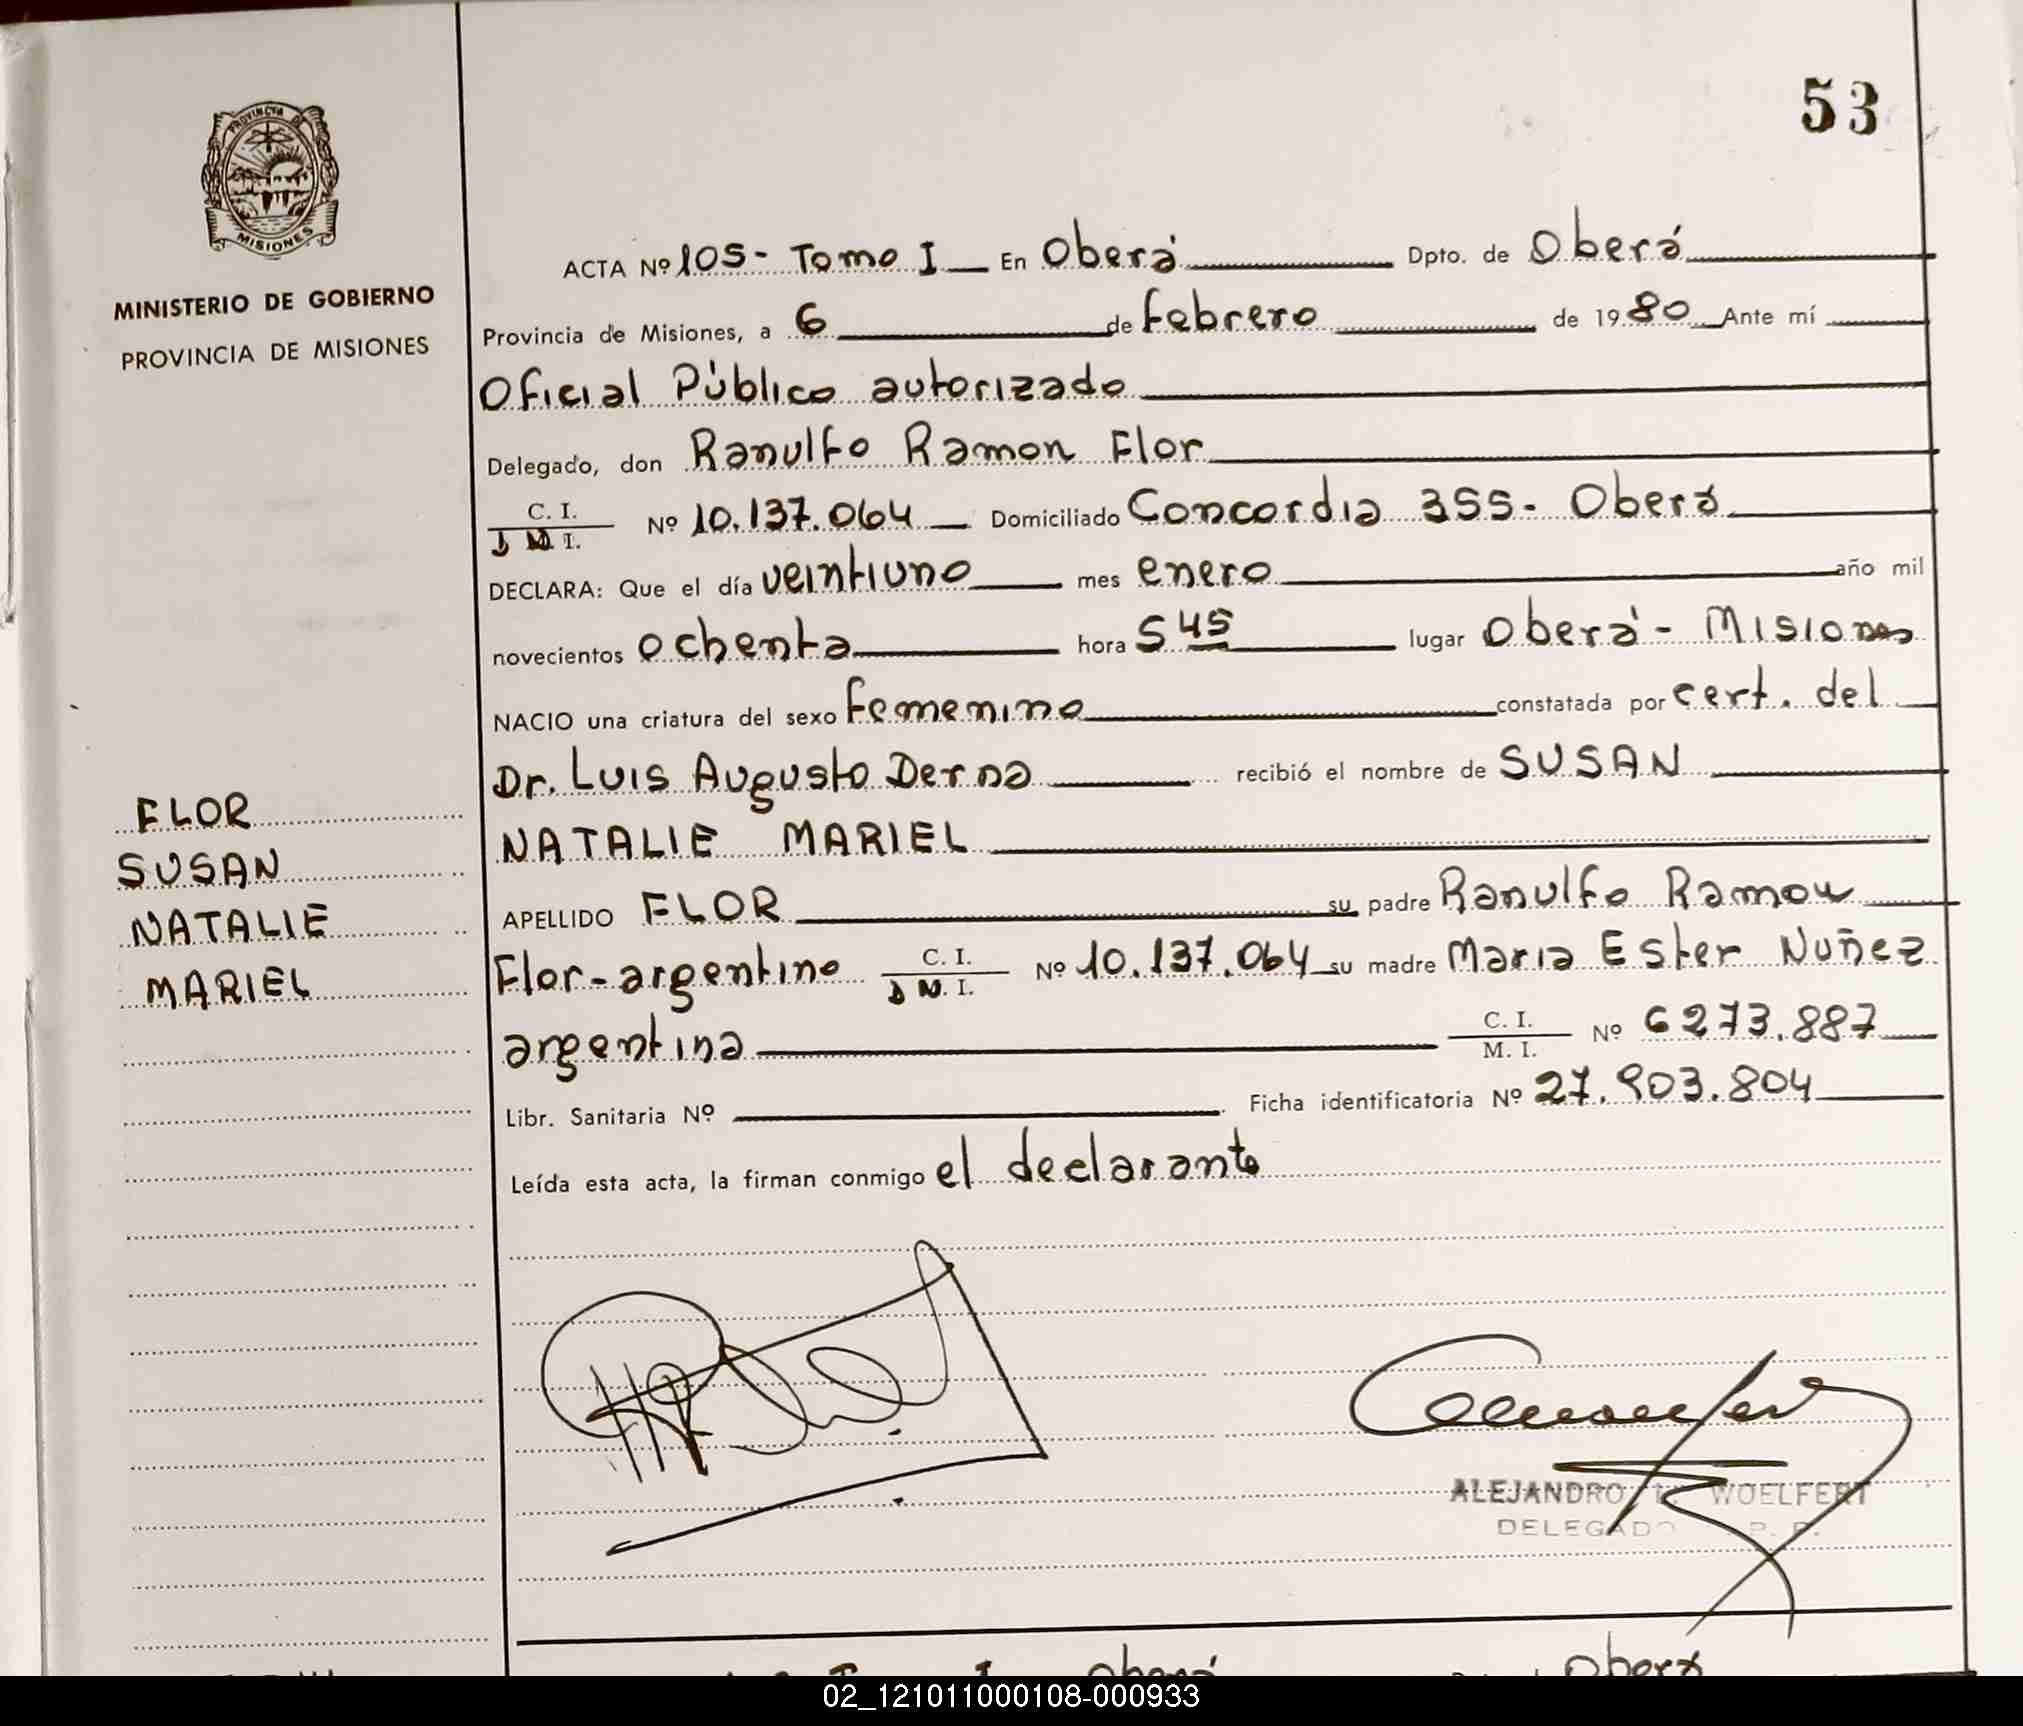 53
PROVINCIA DE
MISIONES
MINISTERIO DE GOBIERNO
PROVINCIA DE MISIONES
ACTA Nº 105- Tomo I En Oberá Dpto. de Oberá
Provincia de Misiones, a 6 de febrero de 1980 Ante mí
Oficial Público autorizado
Delegado, don Ranulfo Ramon Flor
C. I.
D N. I. Nº 10.137.064 Domiciliado Concordia 355- Oberá
DECLARA: Que el día veintiuno mes enero año mil
novecientos ochenta hora 5 45 lugar Oberá- Misiones
NACIO una criatura del sexo femenino constatada por cert. del
Dr. Luis Augusto Derna recibió el nombre de SUSAN
NATALIE MARIEL
APELLIDO FLOR su padre Ranulfo Ramon
Flor-argentino C. I.
D N. I. Nº 10.137.064 su madre Maria Ester Nuñez
argentina C. I.
M. I. Nº 6273.887
Libr. Sanitaria Nº Ficha identificatoria Nº 27.903.804
Leída esta acta, la firman conmigo el declarante
FLOR
SUSAN
NATALIE
MARIEL
ALEJANDRO WOELFERT
DELEGADO
Oberá Oberá
02_121011000108-000933